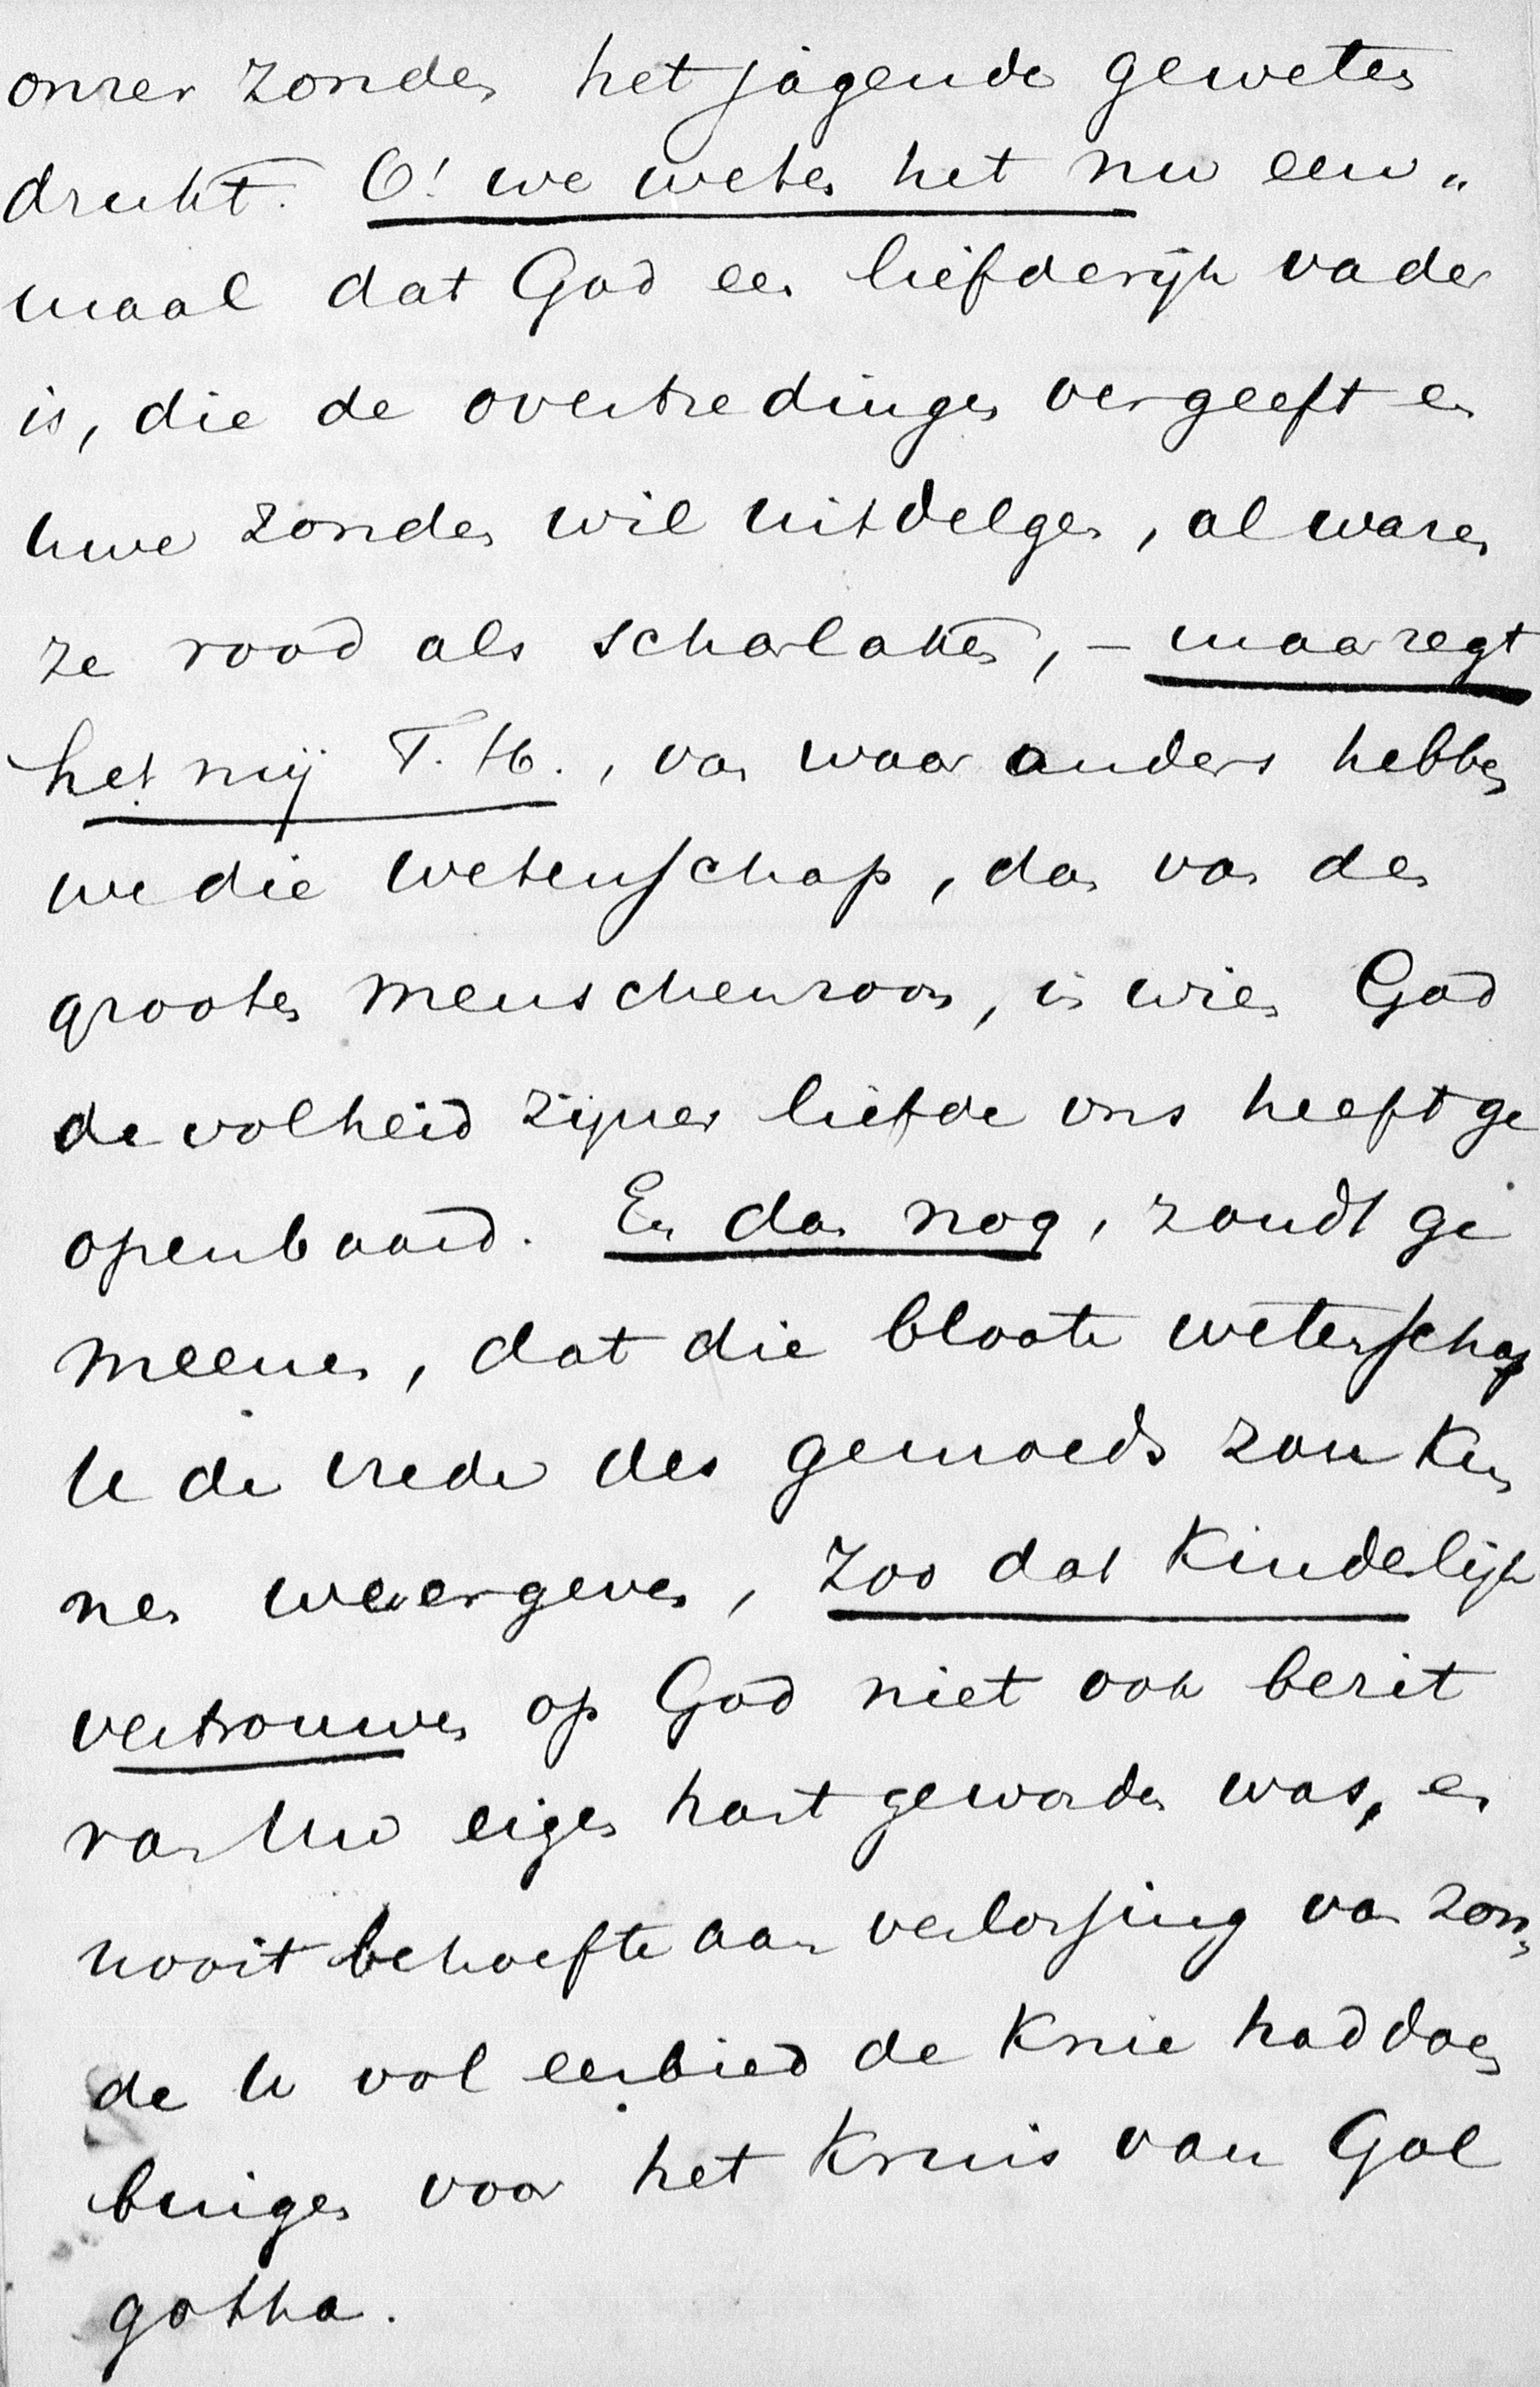 onzer zonden het jagende geweten
drukt. O! we weten het nu een„
maal dat God een liefderijk vader
is, die de overtredingen vergeeft en
uwe zonden wil uitdelgen, al waren
ze rood als scharlaken, – maar zegt
het mij T. H., van waar anders hebben
we die wetenschap, dan van den
grooten menschenzoon, in wien God
de volheid zijner liefde ons heeft ge
openbaard. En dan nog, zoudt gij
meenen, dat die bloote wetenschap
U de vrede des gemoeds zou kun
nen weergeven, zoo dat kinderlijk
vertrouwen op God niet ook bezit
van Uw eigen hart geworden was, en
nooit behoefte aan verlossing van zon„
de U vol eerbied de knie had doen
buigen voor het kruis van Gol
gotha.